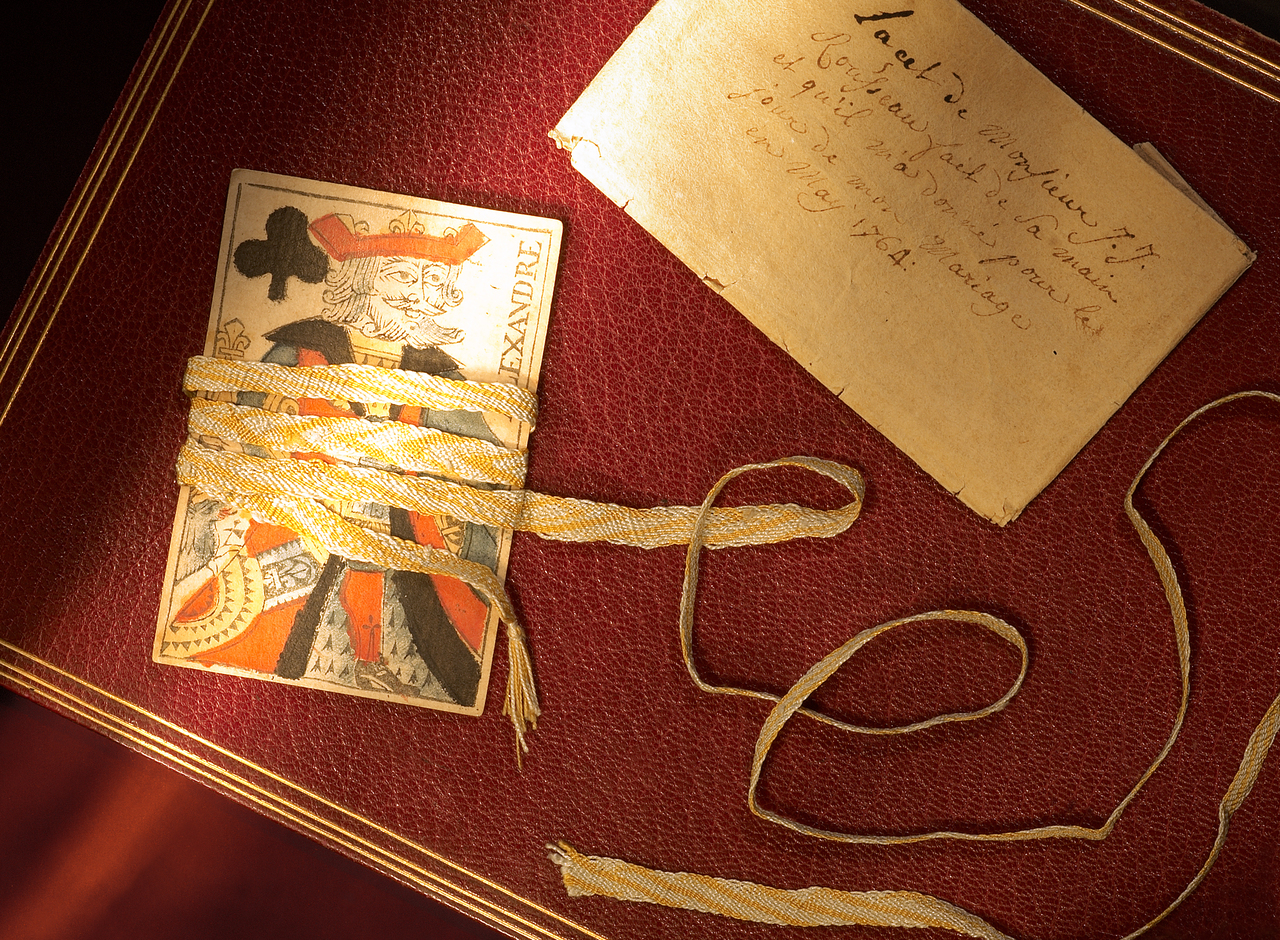 lacet de Monsieur J. J.
Rousseau fait de Sa main
et qu'il m'a donné pour le
jour de mon Mariage
en May 1764.
EXANDRE